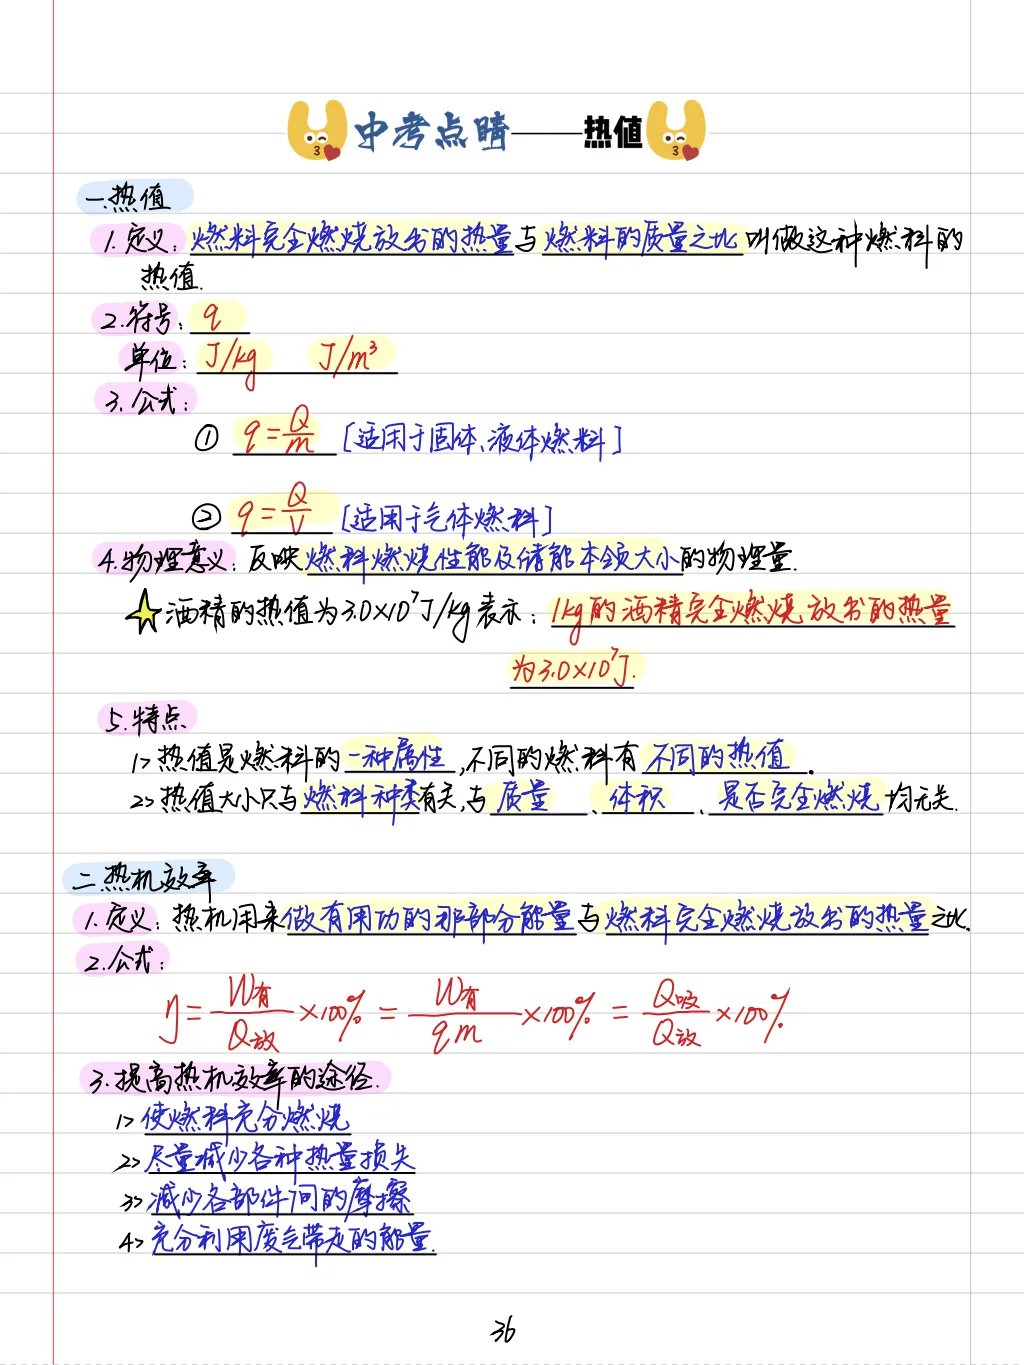 中考点睛——热值
一.热值
1.定义：燃料完全燃烧放出的热量与燃料的质量之比叫做这种燃料的
热值.
2.符号：q
单位：J/kg J/m³
3.公式：
① q=Q/m [适用于固体、液体燃料]
② q=Q/V [适用于气体燃料]
4.物理意义：反映燃料燃烧性能及储能本领大小的物理量.
酒精的热值为3.0×10⁷J/kg表示：1kg的酒精完全燃烧放出的热量
为3.0×10⁷J.
5.特点
1> 热值是燃料的一种属性,不同的燃料有不同的热值.
2> 热值大小只与燃料种类有关,与质量、体积、是否完全燃烧均无关.
二.热机效率
1.定义：热机用来做有用功的那部分能量与燃料完全燃烧放出的热量之比.
2.公式：
η=W有/Q放×100%=W有/qm×100%=Q吸/Q放×100%
3.提高热机效率的途径.
1> 使燃料充分燃烧
2> 尽量减少各种热量损失
3> 减少各部件间的摩擦
4> 充分利用废气带走的能量.
36